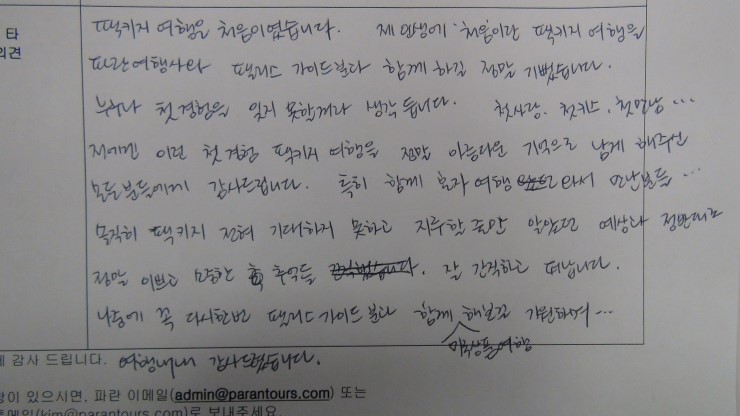 타
의견
팩키지 여행을 처음이였습니다. 제 인생에 처음이란 팩키지 여행을
파란여행사와 팰리스 가이드분과 함께 하길 정말 기뻤습니다.
누구나 첫경험을 잊지 못할꺼라 생각 듭니다. 첫사랑, 첫키스, 첫만남 …
저에겐 이런 첫경험 팩키지 여행을 정말 아름다운 기억으로 남게 해주신
모든분들에게 감사드립니다. 특히 함께 혼자여행 와서 만난분들 …
솔직히 팩키지 전혀 기대하지 못하고 지루할 줄만 알았던 예상과 정반대로
정말 이쁘고 소중한 추억들 잘 간직하고 떠납니다.
나중에 꼭 다시한번 팰리스 가이드 분과 함께 해보길 기원하며 …
다음상품여행
감사 드립니다. 여행내내 감사드렸습니다.
이 있으시면, 파란 이메일(admin@parantours.com) 또는
메일(kim@parantours.com)로 보내주세요.